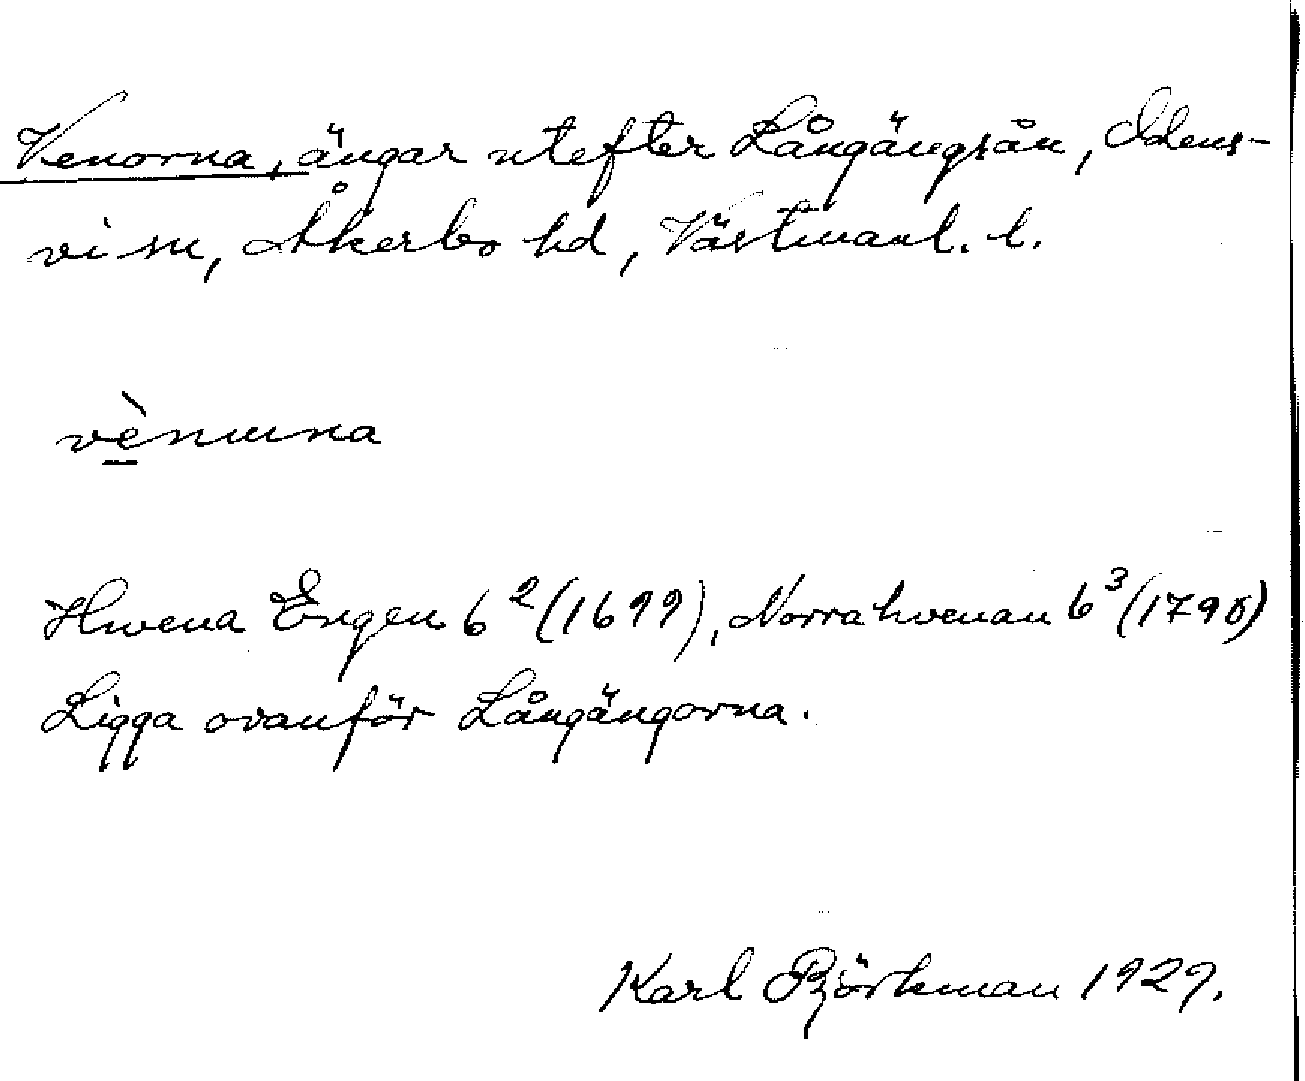 Venorna, ängar utefter Långängsån, Odens-
vi sn, Åkerbo hd, Västmanl. l.
vènuna
Hwena Engen 6² (1699), Norra hvenan 6³ (1790)
Ligga ovanför Långängorna.
Karl Björkman 1929.